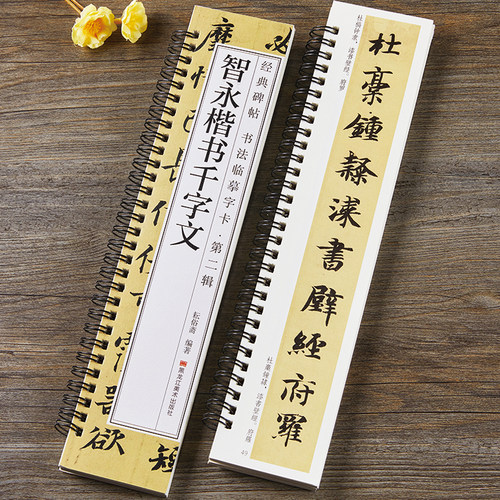 经典碑帖 书法临摹字卡·第二辑
智永楷书千字文
耘俗斋 编著
黑龙江美术出版社
靡
欲
短
杜稿钟隶,漆书壁经。府罗
杜稾鍾隸漆書壁經府羅
杜稾鍾隸,漆書壁經。府羅
49